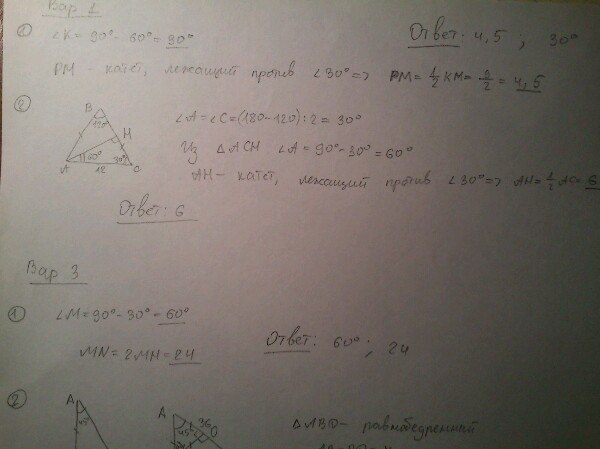 Вар 1
① ∠K = 90° - 60° = 30°
Ответ: 4,5 ; 30°
PM - катет, лежащий против ∠30° => PM = 1/2 KM = 9/2 = 4,5
②
B
120°
H
60°
30°
A
12
C
∠A = ∠C = (180 - 120) : 2 = 30°
Из △ACH ∠A = 90° - 30° = 60°
AH - катет, лежащий против ∠30° => AH = 1/2 AC = 6
Ответ: 6
Вар 3
① ∠M = 90° - 30° = 60°
MN = 2MH = 24
Ответ: 60° ; 24
②
A
45
A
45
36
D
△ABD - равнобедренный